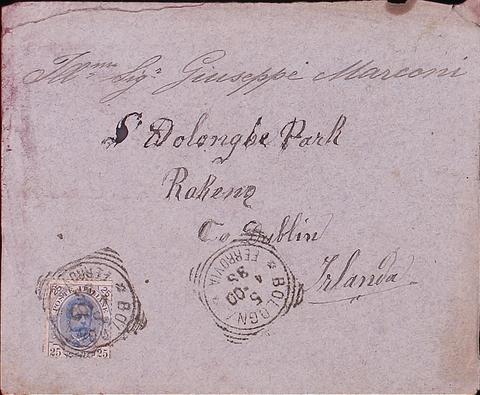 Ill.mo Sig.r Giuseppe Marconi
S Dolonghe Park
Raheny
Co Dublin
Irlanda
BOLOGNA
FERROVIA
5-00
4 93
BOLOGNA
FERROVIA
POSTE ITALIANE
25 25
25 25